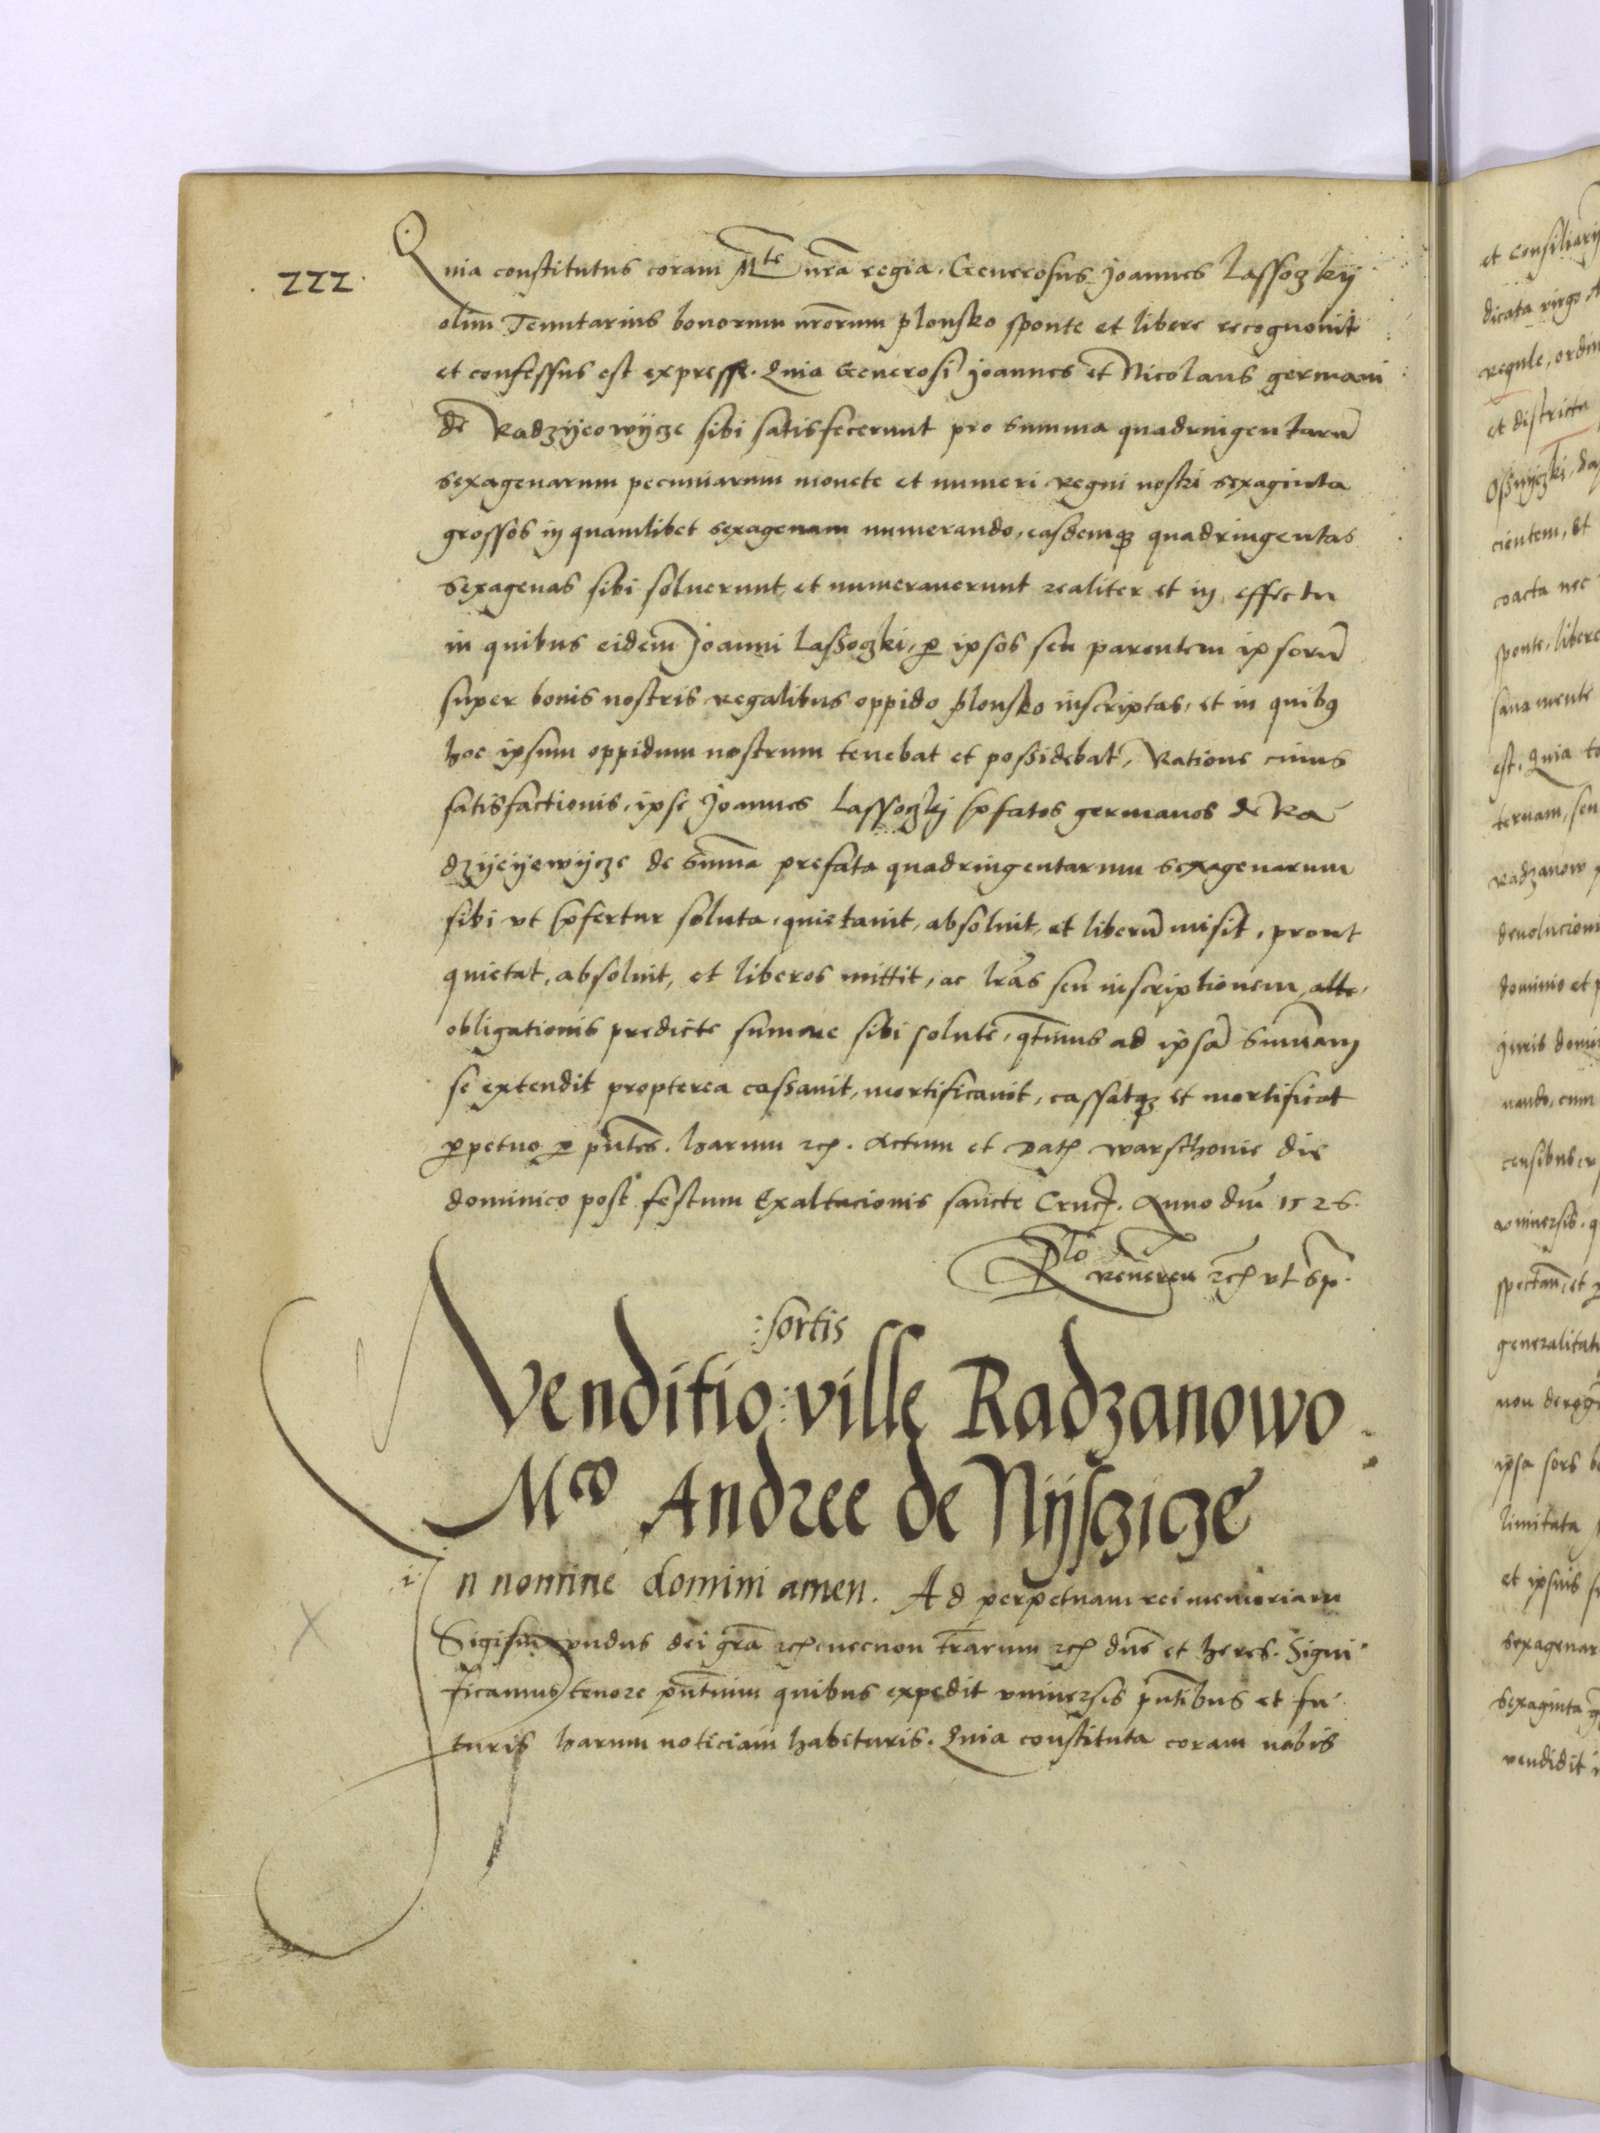 . 222 .
Quia constitutus coram Mte nra regia. Generosus Joannes Lassoczkij
olim Tenutarius bonorum nrorum plonsko sponte et libere recognouit
et confessus est expresse. Quia Generosi Joannes et Nicolaus germani
de Radzijeowijcze sibi satisfecerunt pro summa quadringentaru
sexagenarum pecuniarum monete et numeri regni nostri sexaginta
grossos in quamlibet sexagenam numerando, easdemqz quadringentas
sexagenas sibi soluerunt et numerauerunt realiter et in effectu
in quibus eidem Joanni Lassoczki, p ipsos seu parentem ipsoru
super bonis nostris regalibus oppido plonsko inscriptas, et in quibus
hoc ipsum oppidum nostrum tenebat et possidebat, Ratione cuius
satisfactionis, ipse Joannes Lassoczkij pfatos germanos de Ra
dzijeijewijcze de suma prefata quadringentarum sexagenarum
sibi vt pfertur soluta, quietauit, absoluit, et liberu misit, prout
quietat, absoluit, et liberos mittit, ac lras seu inscriptionem alte
obligationis predicte summe sibi solute, qtenus ad ipsa summam
se extendit propterea cassauit, mortificauit, cassatqz et mortificat
ppetuo p pntes. harum etc. Actum et Dat warschouie die
dominico post festum Exaltacionis sancte Cruc. Anno dni 1526.
Rlo reueren etc vt sp.
:sortis
Venditio: ville Radzanowo
Mco Andree de Nijsczicze
In nomine domini amen. Ad perpetuam rei memoriam
Sigismundus dei gra etc necnon trarum etc dns et heres. Signi
ficamus tenore pntium quibus expedit vniuersis pntibus et fu
turis harum noticiam habituris. Quia constituta coram nobis
et consiliarij
dicata virgo
regule, ordin
et districtu
Ossnijczki,
cientem, et
coacta nec
sponte, libere
sana mente
est. Quia to
ternam, seu
Radzanow
deuolucioni
dominio et p
iuris domi
nando, cum
censibus
vniuersis. q
spectan, et p
generalitati
non derog
ipsa sors
limitata
et ipsius
sexagenar
sexaginta g
vendidit i